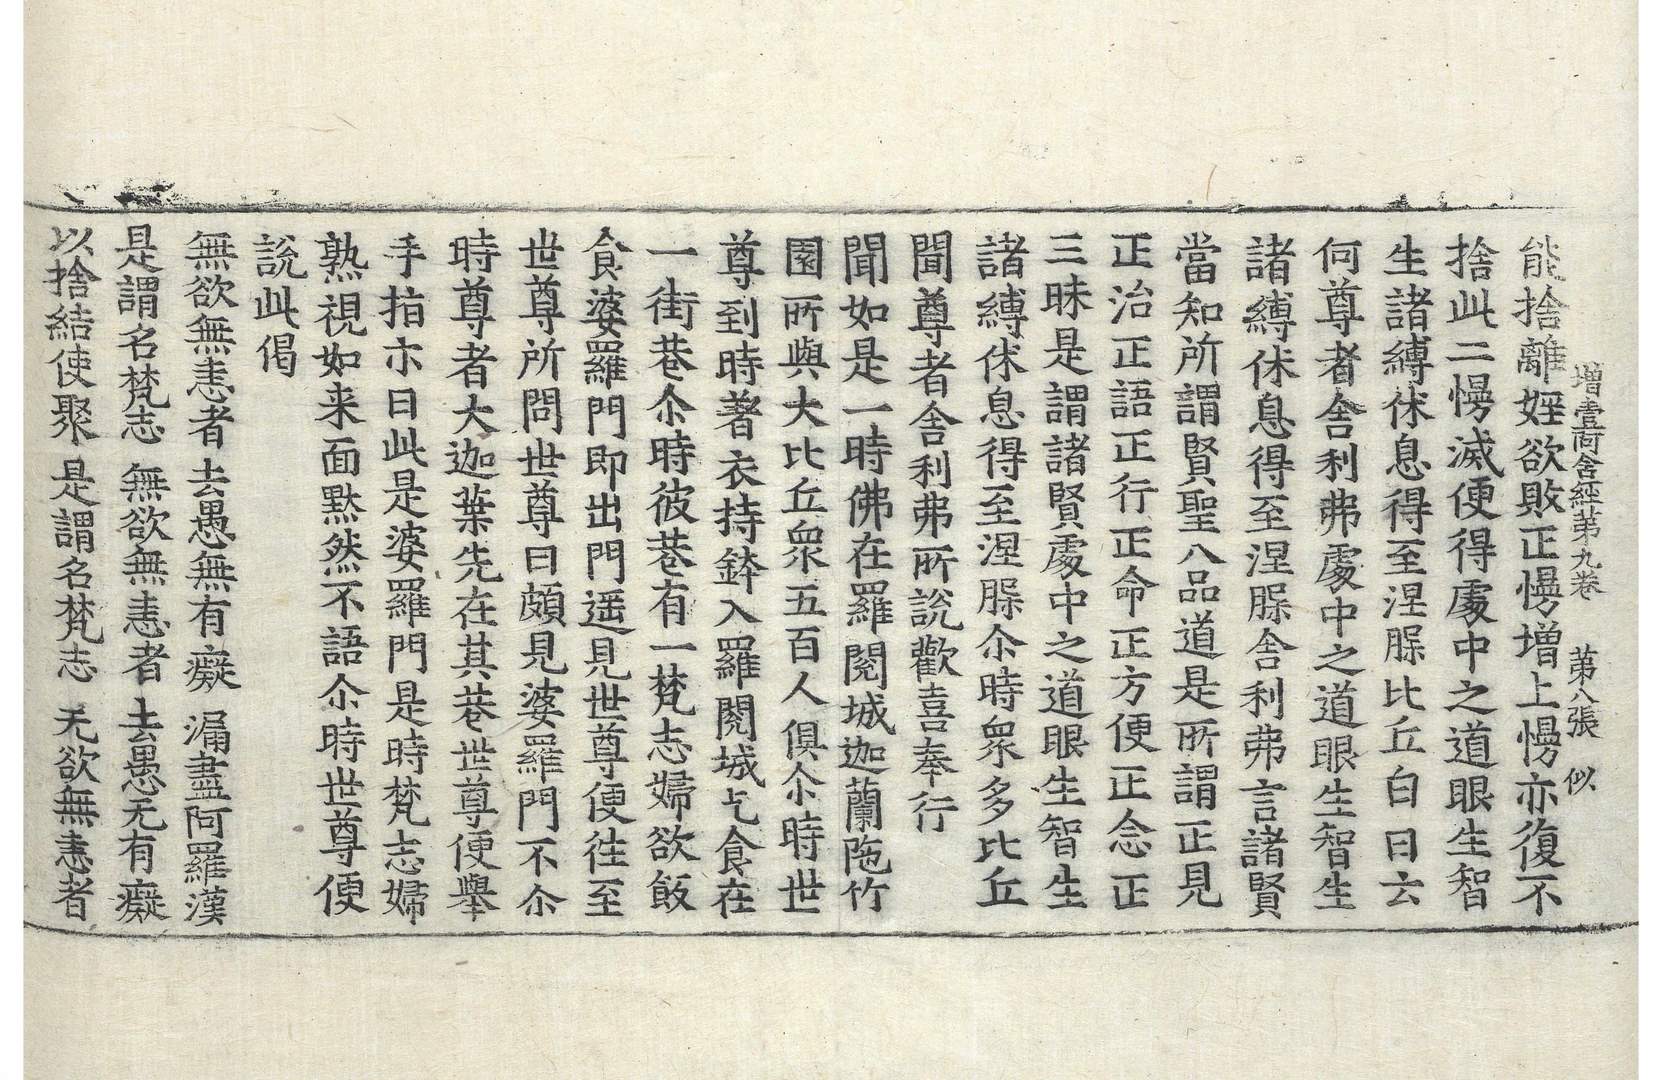 增壹阿含經第九卷 第八張 似
能捨離婬欲敗正慢增上慢亦復不
捨此二慢滅便得處中之道眼生智
生諸縛休息得至涅脲比丘白曰云
何尊者舍利弗處中之道眼生智生
諸縛休息得至涅脲舍利弗言諸賢
當知所謂賢聖八品道是所謂正見
正治正語正行正命正方便正念正
三昧是謂諸賢處中之道眼生智生
諸縛休息得至涅脲尒時衆多比丘
聞尊者舍利弗所說歡喜奉行
聞如是一時佛在羅閱城迦蘭陁竹
園所與大比丘衆五百人俱尒時世
尊到時著衣持鉢入羅閱城乞食在
一街巷尒時彼巷有一梵志婦欲飯
食婆羅門即出門遥見世尊便往至
世尊所問世尊曰頗見婆羅門不尒
時尊者大迦葉先在其巷世尊便舉
手指示曰此是婆羅門是時梵志婦
熟視如来面默然不語尒時世尊便
說此偈
無欲無恚者 去愚無有癡 漏盡阿羅漢
是謂名梵志 無欲無恚者 去愚无有癡
以捨結使聚 是謂名梵志 无欲無恚者